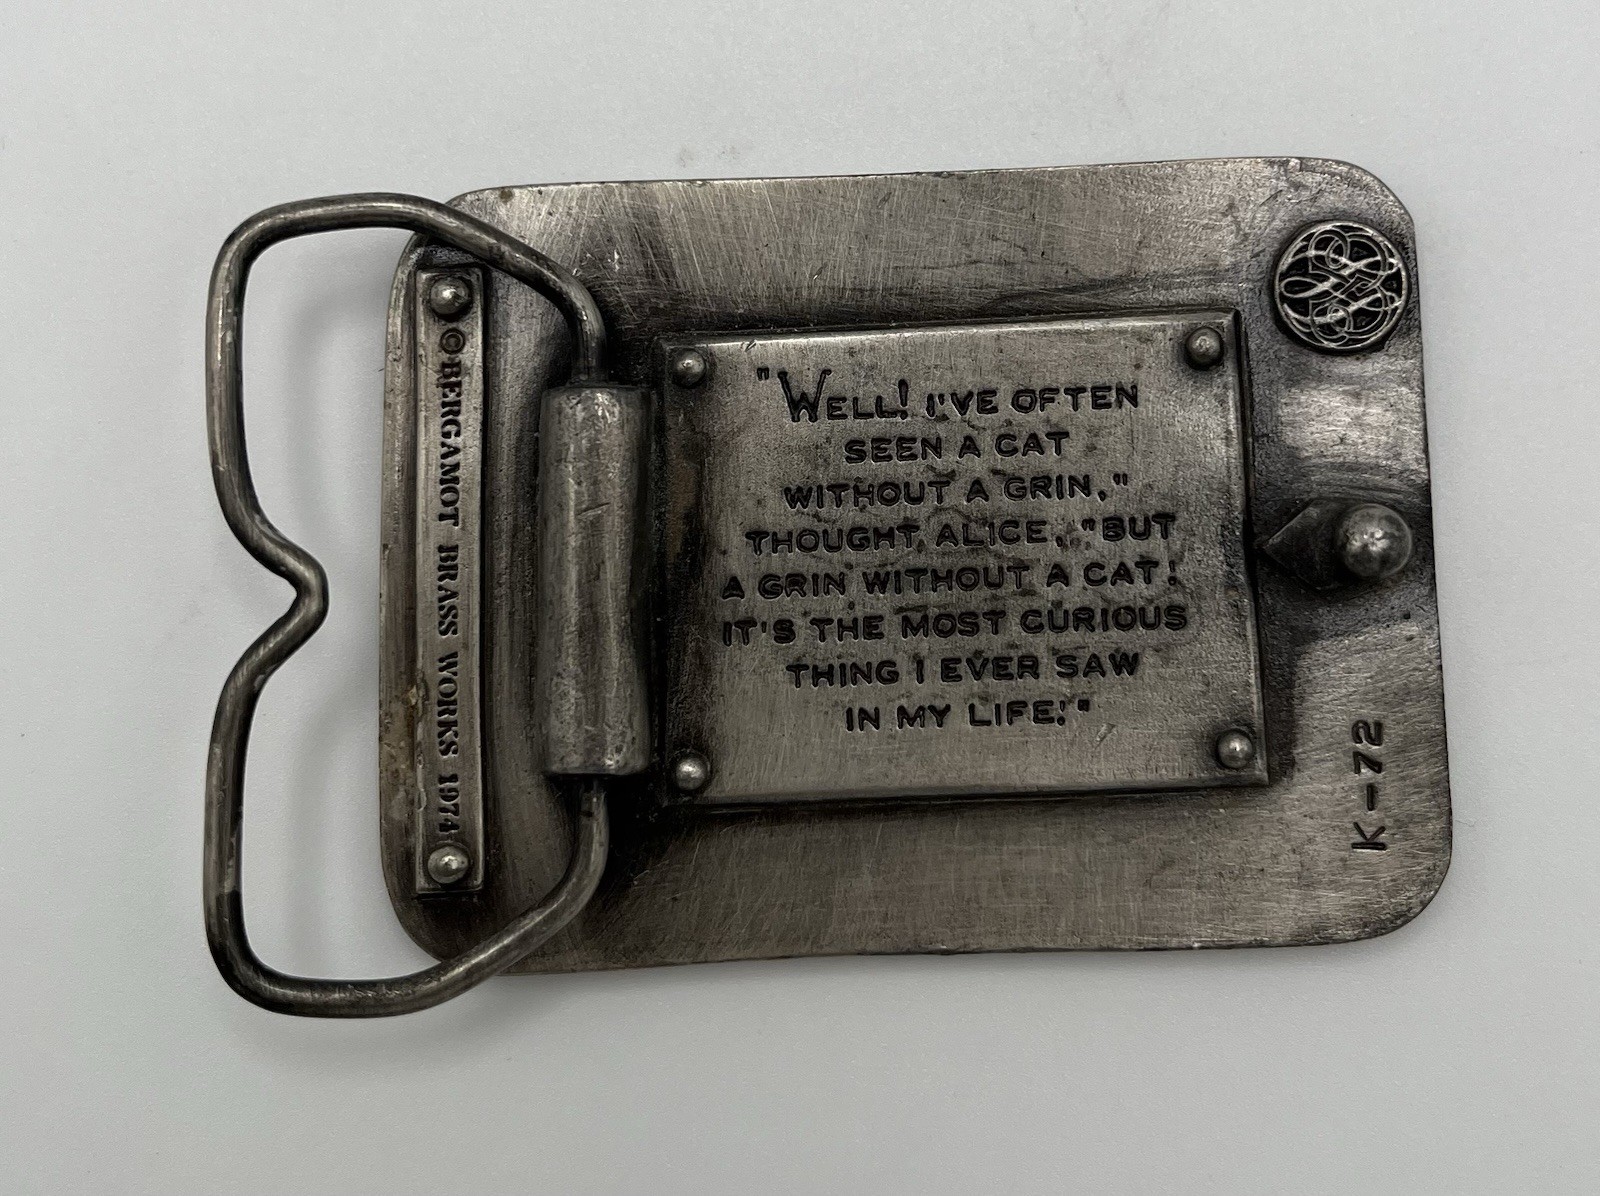 ©BERGAMOT BRASS WORKS 1974
"WELL! I'VE OFTEN
SEEN A CAT
WITHOUT A GRIN,"
THOUGHT ALICE, "BUT
A GRIN WITHOUT A CAT!
IT'S THE MOST CURIOUS
THING I EVER SAW
IN MY LIFE!"
K-72